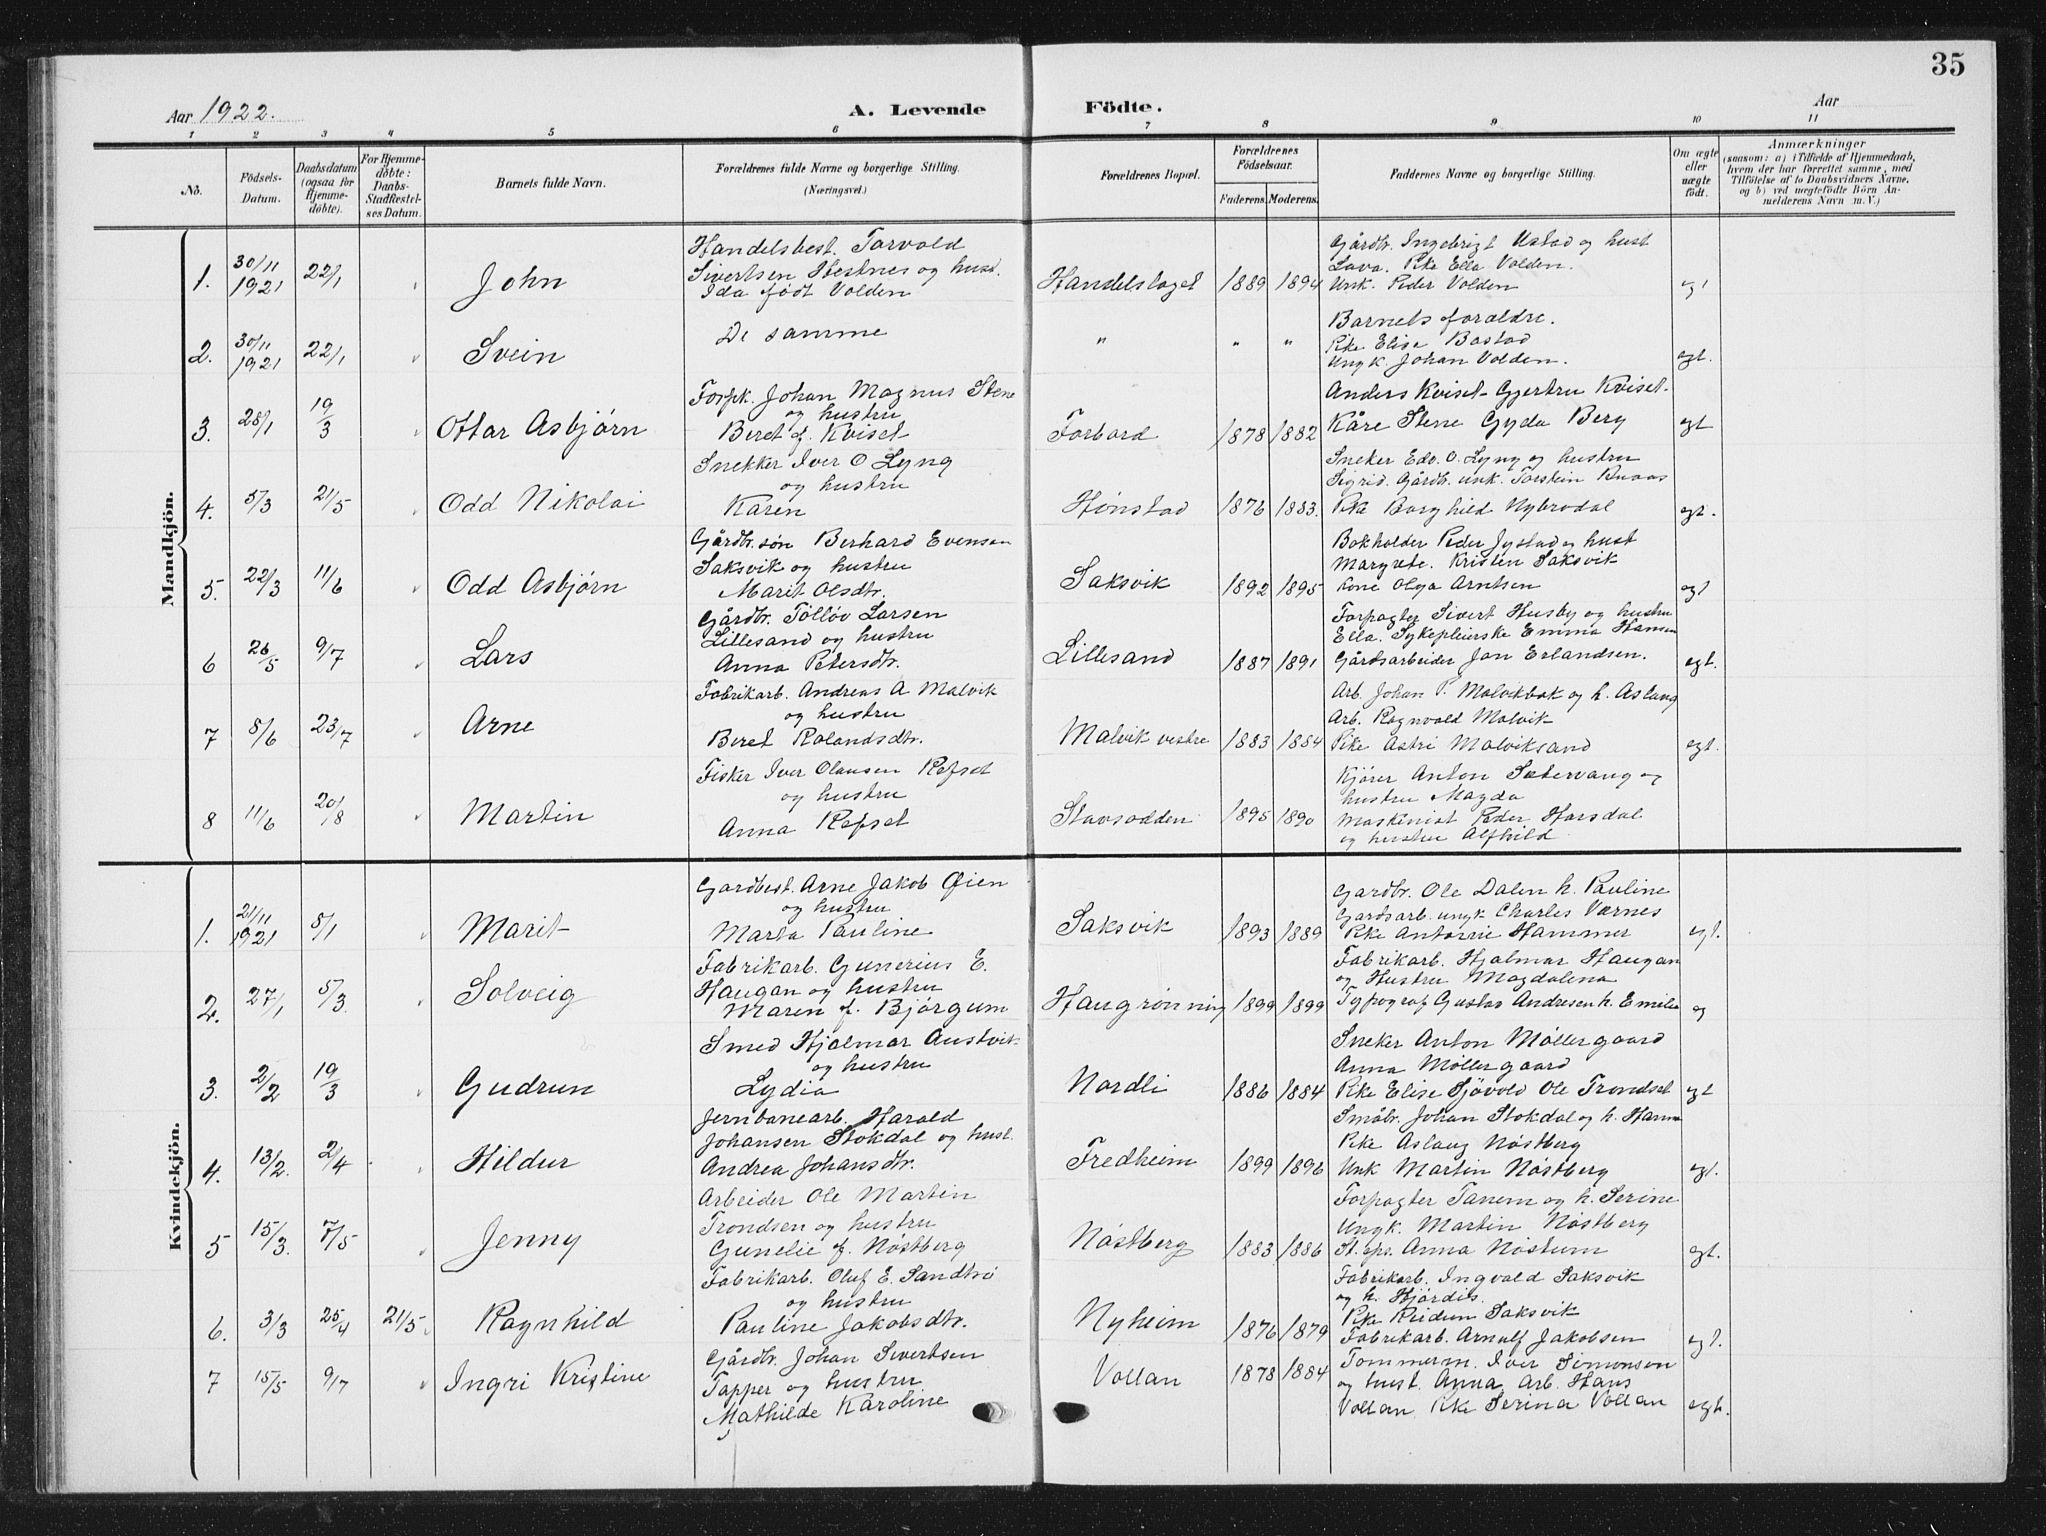 35
Aar 1922.
A. Levende Födte.
Aar
1 2 3 4 5 6 7 8 9 10 11
No.
Födsels-Datum.
Daabsdatum (ogsaa for Hjemmedöbte).
For Hjemmedöbte: Daabs-Stadfæstelses Datum.
Barnets fulde Navn.
Forældrenes fulde Navne og borgerlige Stilling. (Næringsvei.)
Forældrenes Bopæl.
Forældrenes Födselsaar.
Faderens. Moderens.
Faddernes Navne og borgerlige Stilling.
Om ægte eller uægte födt.
Anmærkninger
(saasom: a) i Tilfælde af Hjemmedaab, hvem der har forrettet samme, med Tilföielse af to Daabsvidners Navne, og b) ved uægtefödte Börn Anmelderens Navn m. V.)
Mandkjön.
1. 30/11 1921 22/1 John
Handelsbest. Torvald
Sivertsen Hestnes og hust.
Ida født Volden
Handelslaget 1889 1894
Gårdbr. Ingebrigt Ustad og hust
Lava. Pike Ella Volden.
Unk. Peder Volden
2. 30/11 1921 22/1 Svein
De samme
" " "
Barnets forældre.
Pike Elise Bostad
Ungk. Johan Volden.
egt.
3. 28/1 19/3 Ottar Asbjørn
Forpk. Johan Magnus Stene
og hustru
Beret f. Kviset
Forbord 1878 1882
Anders Kviset - Gjertru Kviset-
Kåre Stene Gyda Berg
egt
4. 5/3 21/5 Odd Nikolai
Snekker Iver O Lyng
og hustru
Karen
Hønstad 1876 1883.
Sneker Edv. O. Lyng og hustru
Sigrid. Gårdbr. unk. Torstein Knaas
Pike Borghild Nybrodal
egt.
5. 22/3 11/6 Odd Asbjørn
Gårdbr. søn Berhard Evensen
Saksvik og hustru
Marit Olsdtr.
Saksvik 1892 1895
Bokholder Peder Jystad og hust
Margrete. Kristen Saksvik
Kone Olga Arntsen
egt
6 26/5 9/7 Lars
Gårdbr. Tølløv Larsen
Lillesand og hustru
Anna Petersdtr.
Lillesand 1887 1891
Forpagter Sivert Husby og hustru
Ella. Sykepleierske Emma Hansen
Gårdsarbeider Jon Erlandsen.
egt.
7 8/6 23/7 Arne
Fabrikarb. Andreas A Malvik
og hustru
Beret Rolandsdtr.
Malvik vestre 1883 1884
Arb. Johan P. Malvikbak og h. Aslaug
Arb. Ragnvald Malvik
Pike Astri Malviksand
egt.
8 11/6 20/8 Martin
Fisker Iver Olausen Refset
og hustru
Anna Refset
Stavsodden 1895 1890
Kjører Anton Sætervang og
hustru Magda
Maskinist Peder Horsdal
og hustru Alfhild
Kvindekjön.
1. 21/11 1921 8/1 Marit
Gardbest. Arne Jakob Øien
og hustru
Marta Pauline
Saksvik 1893 1889
Gardbr. Ole Dalen h. Pauline
Gardsarb. ungk CharlesVærnes
Pike Antonie Hammer
egt.
2. 27/1 5/3 Solveig
Fabrikarb. Gunerius E.
Haugan og hustru
Maren f. Bjørgum
Haugrønning 1899 1899
Fabrikarb. Hjalmar Haugan
og Hustru Magdalena
Typograf Gustav Andresen h. Emilie
eg
3. 2/2 19/3 Gudrun
Smed Hjalmar Austvik
og hustru
Lydia
Nordli 1886 1884
Sneker Anton Møllergaard
Anna Møllergaard
Pike Elise Sjøvold Ole Trondset
egt
4. 13/2. 2/4 Hildur
Jernbanearb. Harald
Johansen Stokdal og hust.
Andrea Johansdtr.
Fredheim 1899 1896
Småbr. Johan Stokdal og h. Hanna
Pike Aslaug Nøstberg
Unk Martin Nøstberg
egt.
5 15/3. 7/5 Jenny
Arbeider Ole Martin
Trondsen og hustru
Gunelie f. Nøstberg
Nøstberg 1883 1886
Forpagter Tanem og h. Serine
Ungk. Martin Nøstberg
Anna Nøstum
egt.
6. 3/3 25/4 21/5 Ragnhild
Fabrikarb. Oluf E. Sandtrø
og hustru
Pauline Jakobsdtr.
Nyheim 1876 1879
Fabrikarb. Ingvald Saksvik
og h. Hjørdis.
Pike Reidun Saksvik
Fabrikarb. Arnulf Jakobsen
egt.
7 15/5 9/7 Ingri Kristine
Gårdbr. Johan Sivertsen
Tapper og hustru
Mathilde Karoline
Vollan 1878 1884
Tømmerm. Iver Simonsen
og hust. Anna, Arb. Hans
Vollan Pike Serina Vollan
egt.